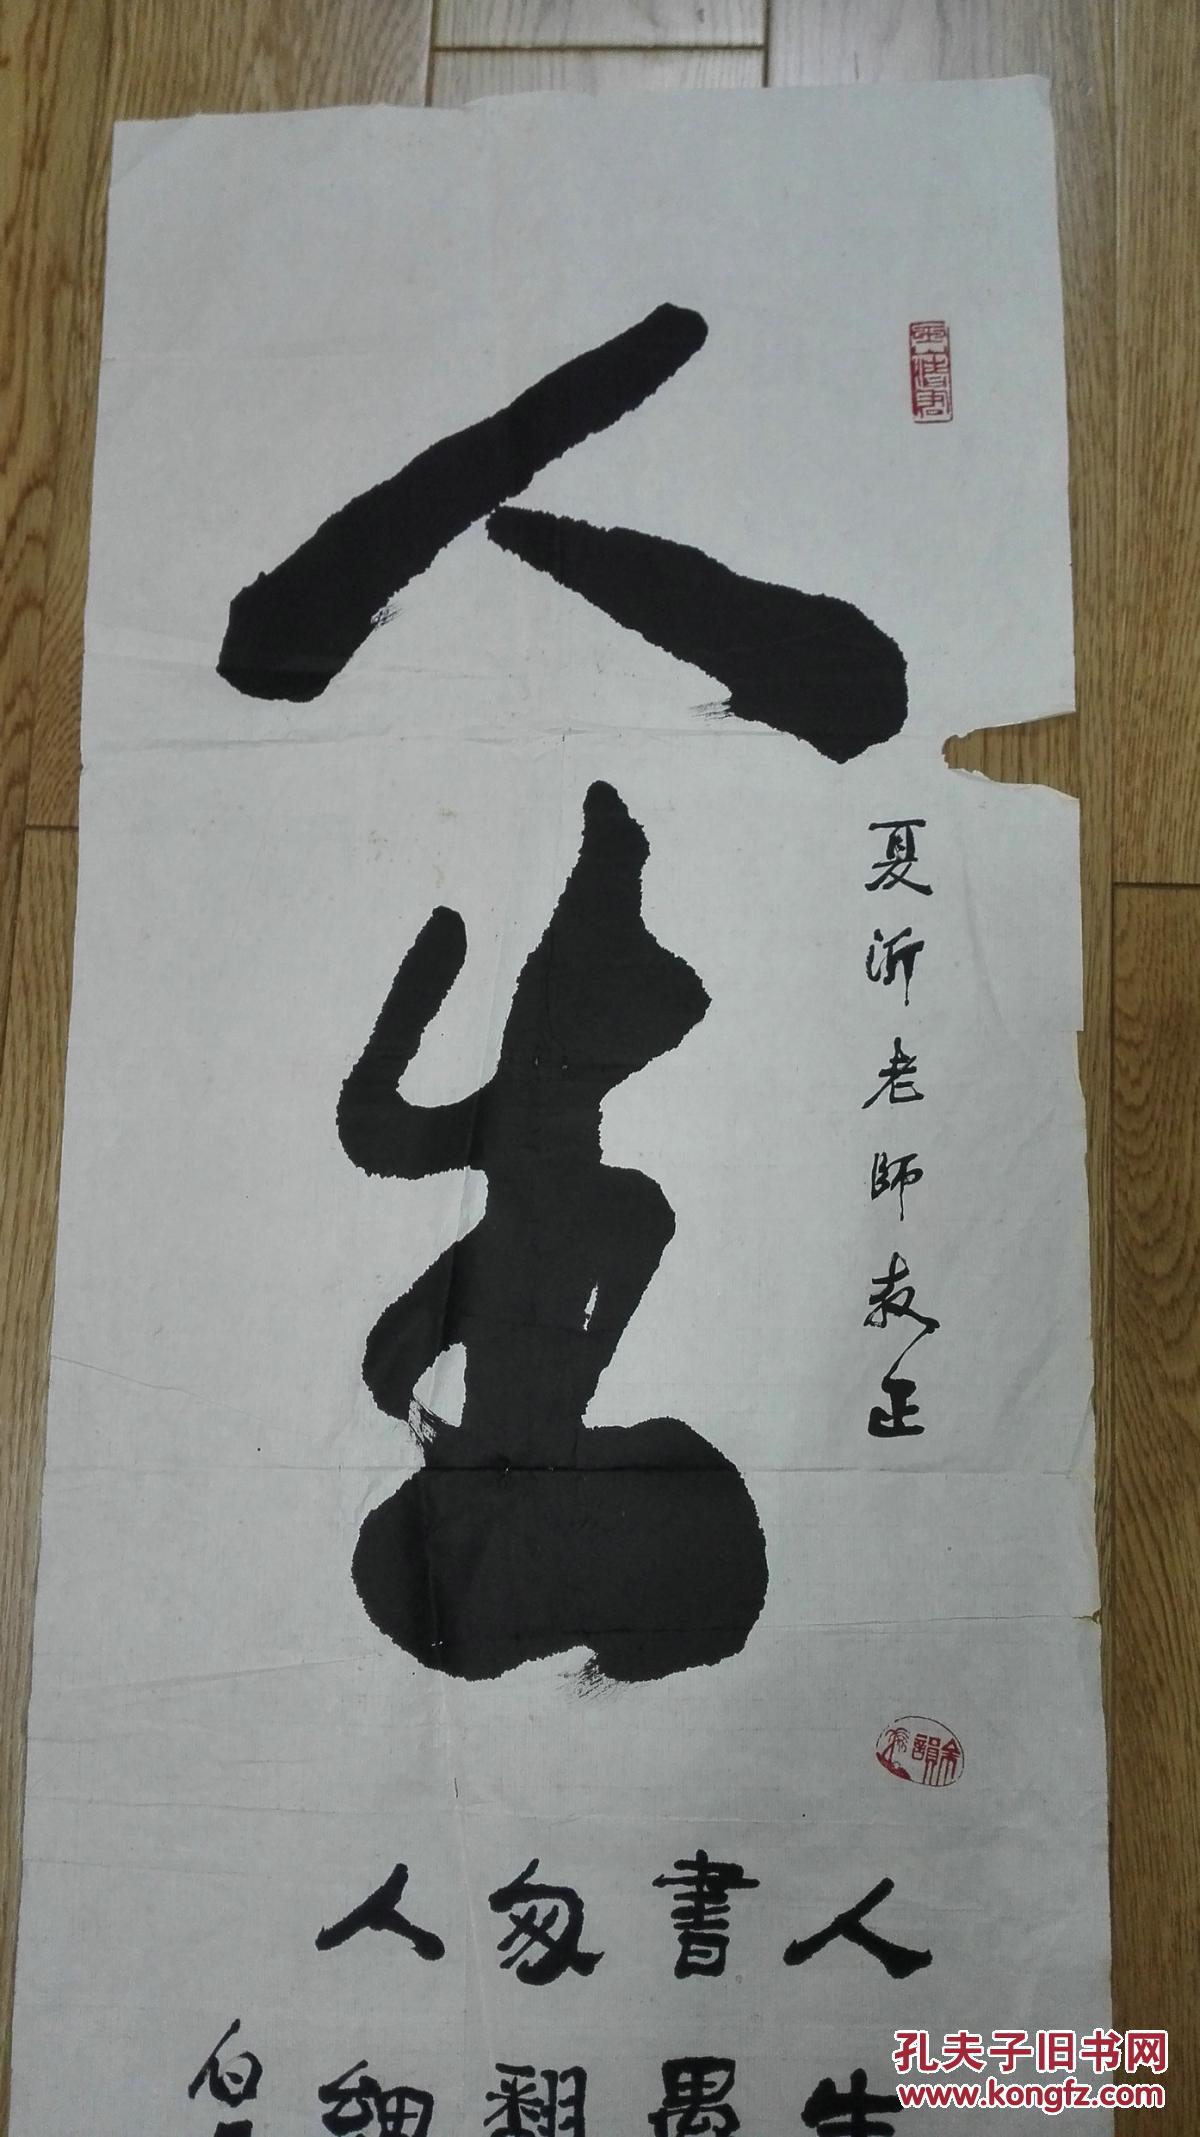 人生
夏沂老師教正
人生
書愚
匆翻
人細
白
孔夫子旧书网
www.kongfz.com